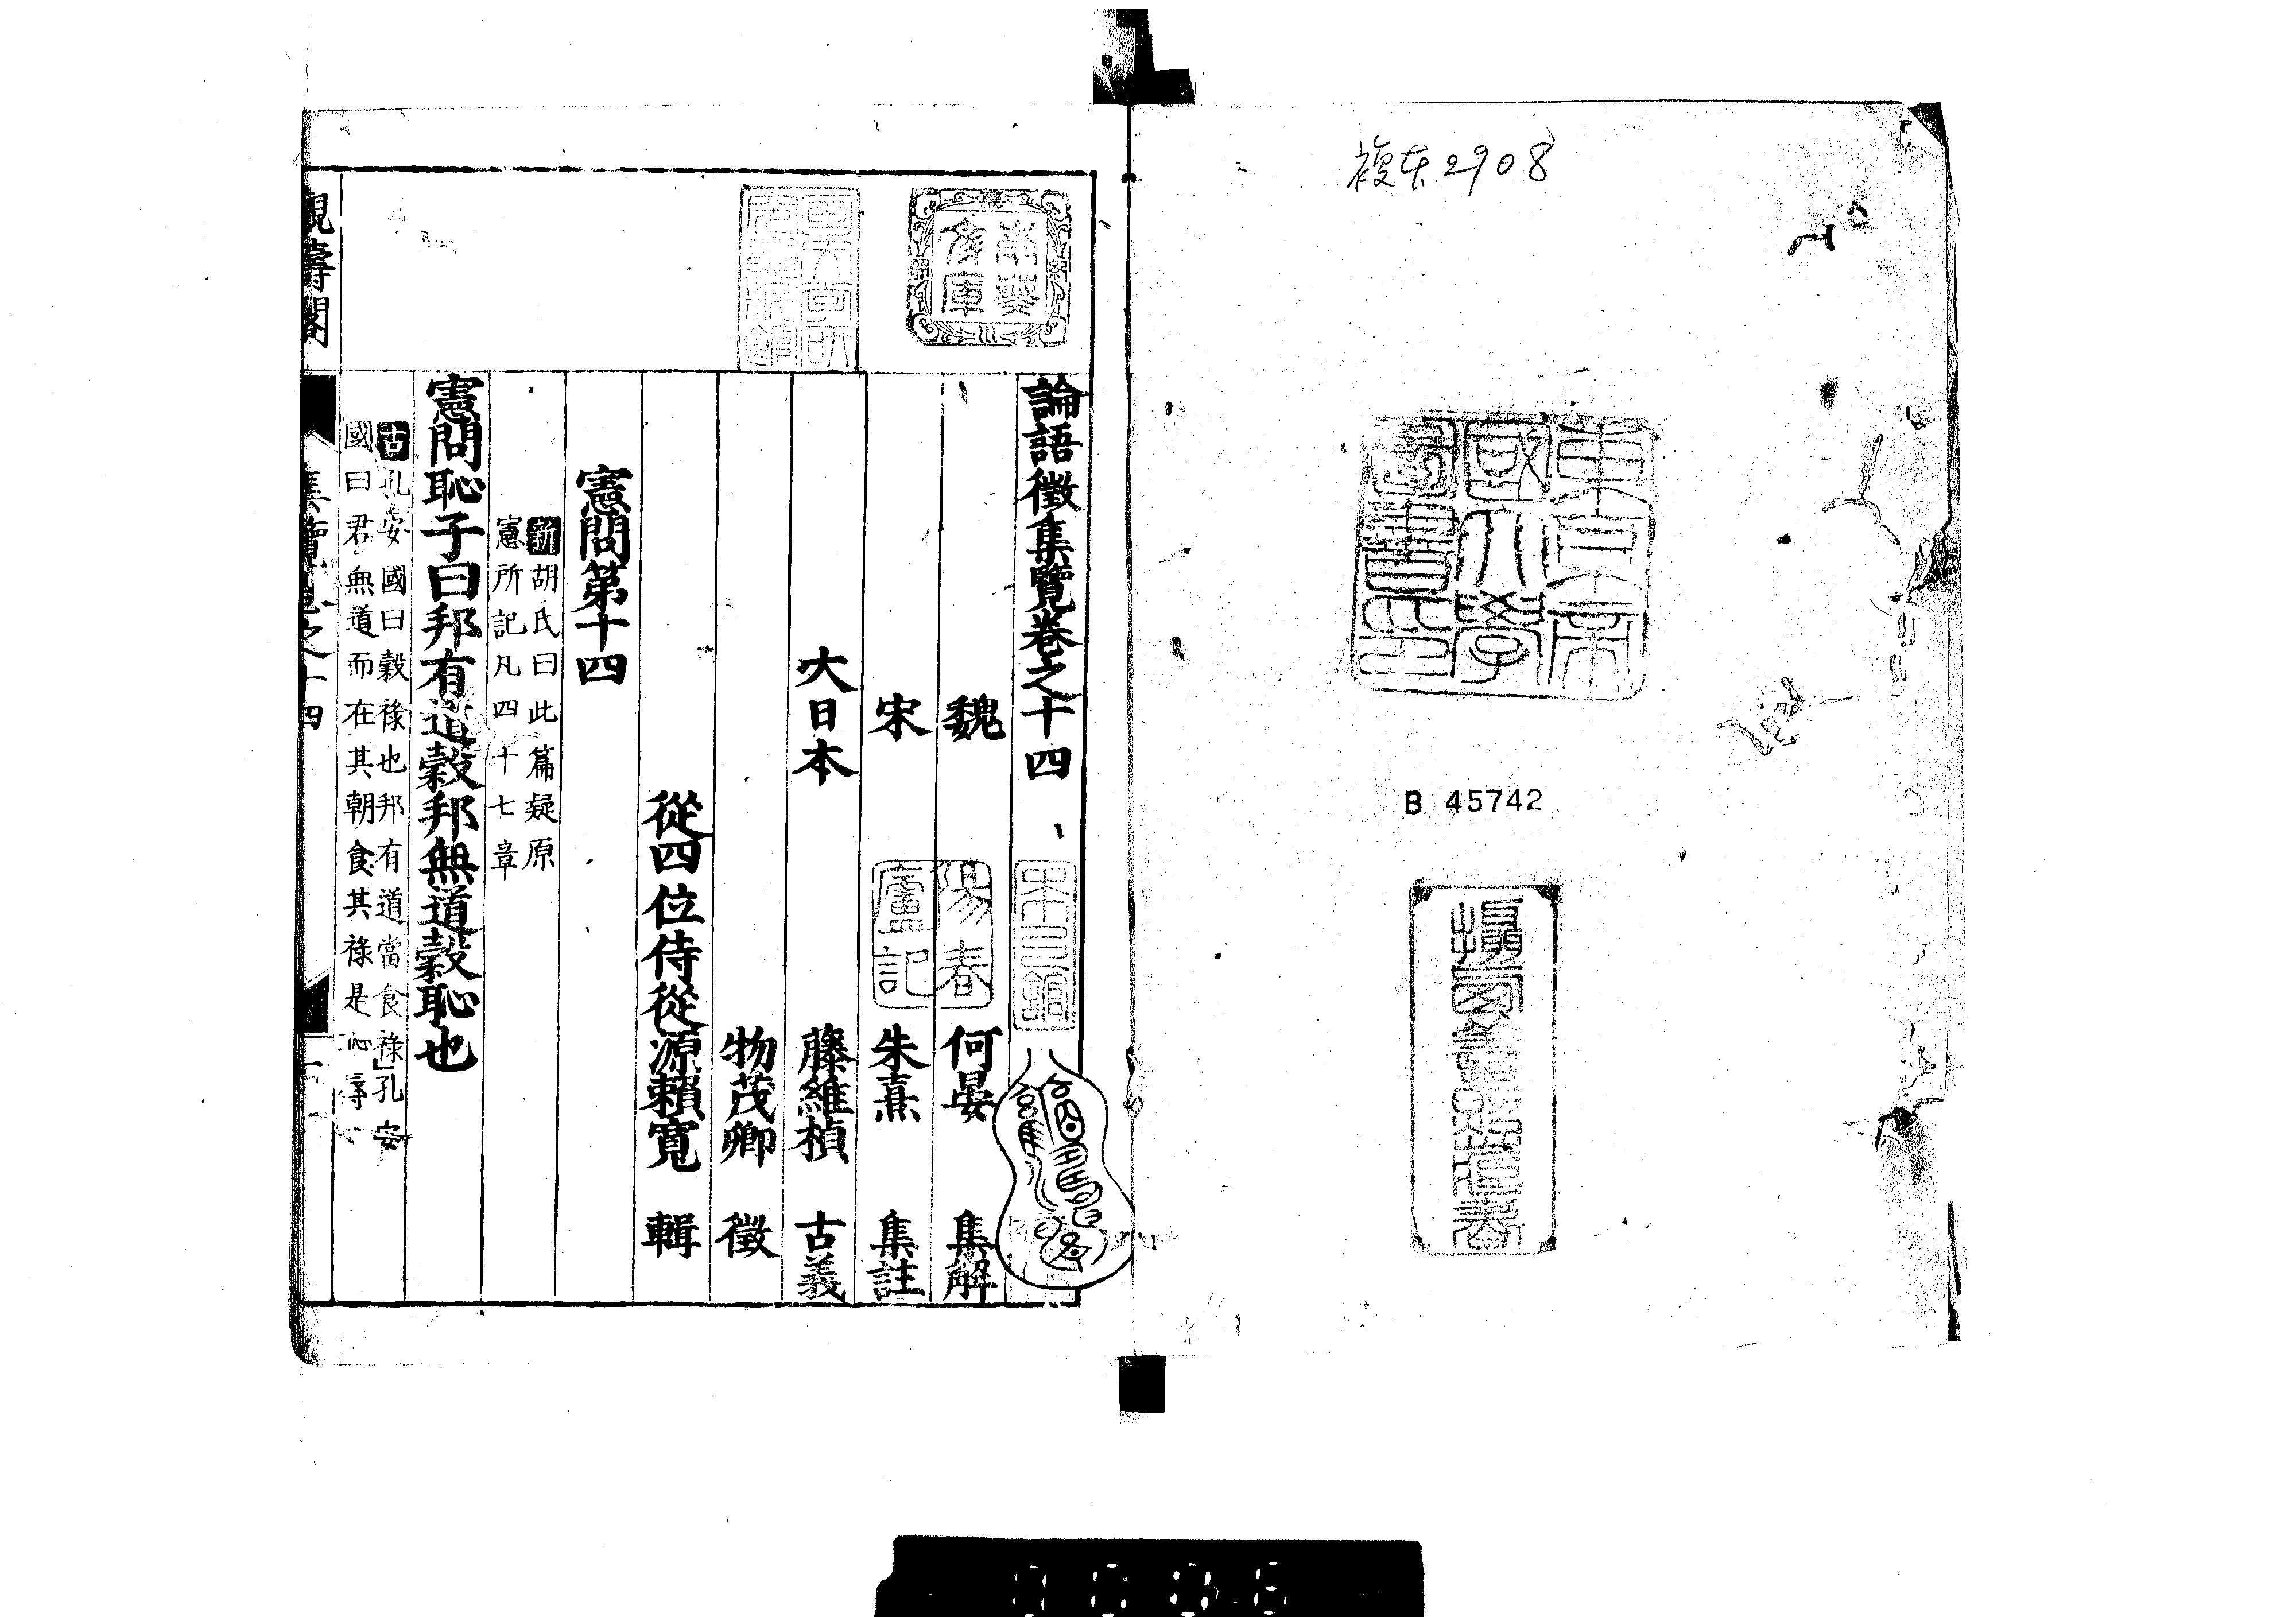 複本2908
東京帝國大學圖書印
B 45742
南葵文庫
陽春廬記
論語徵集覽卷之十四
魏　何晏　集解
宋　朱熹　集註
大日本　藤維楨　古義
物茂卿　徵
從四位侍從源賴寬　輯
憲問第十四
新胡氏曰此篇疑原
憲所記凡四十七章
憲問恥子曰邦有道穀邦無道穀恥也
古孔安國曰穀祿也邦有道當食祿」孔安
國曰君無道而在其朝食其祿是恥辱
觀濤閣
集覽卷之十四